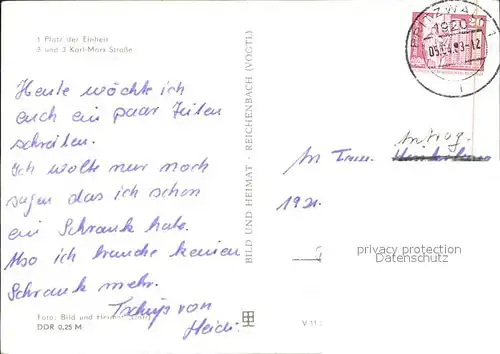 1 Platz der Einheit
2 und 3 Karl-Marx Straße
Heute möchte ich
euch ein paar Zeilen
schreiben.
Ich wollte nur noch
sagen das ich schon
ein Schrank habe.
Also ich brauche keinen
Schrank mehr.
Tschüs von
Heidi.
Foto: Bild und Heimat
DDR 0,25 M
BILD UND HEIMAT · REICHENBACH (VOGTL)
V 11
PRITZWALK 1
1920
-12
20
An Fam.
1921.
privacy protection
Datenschutz